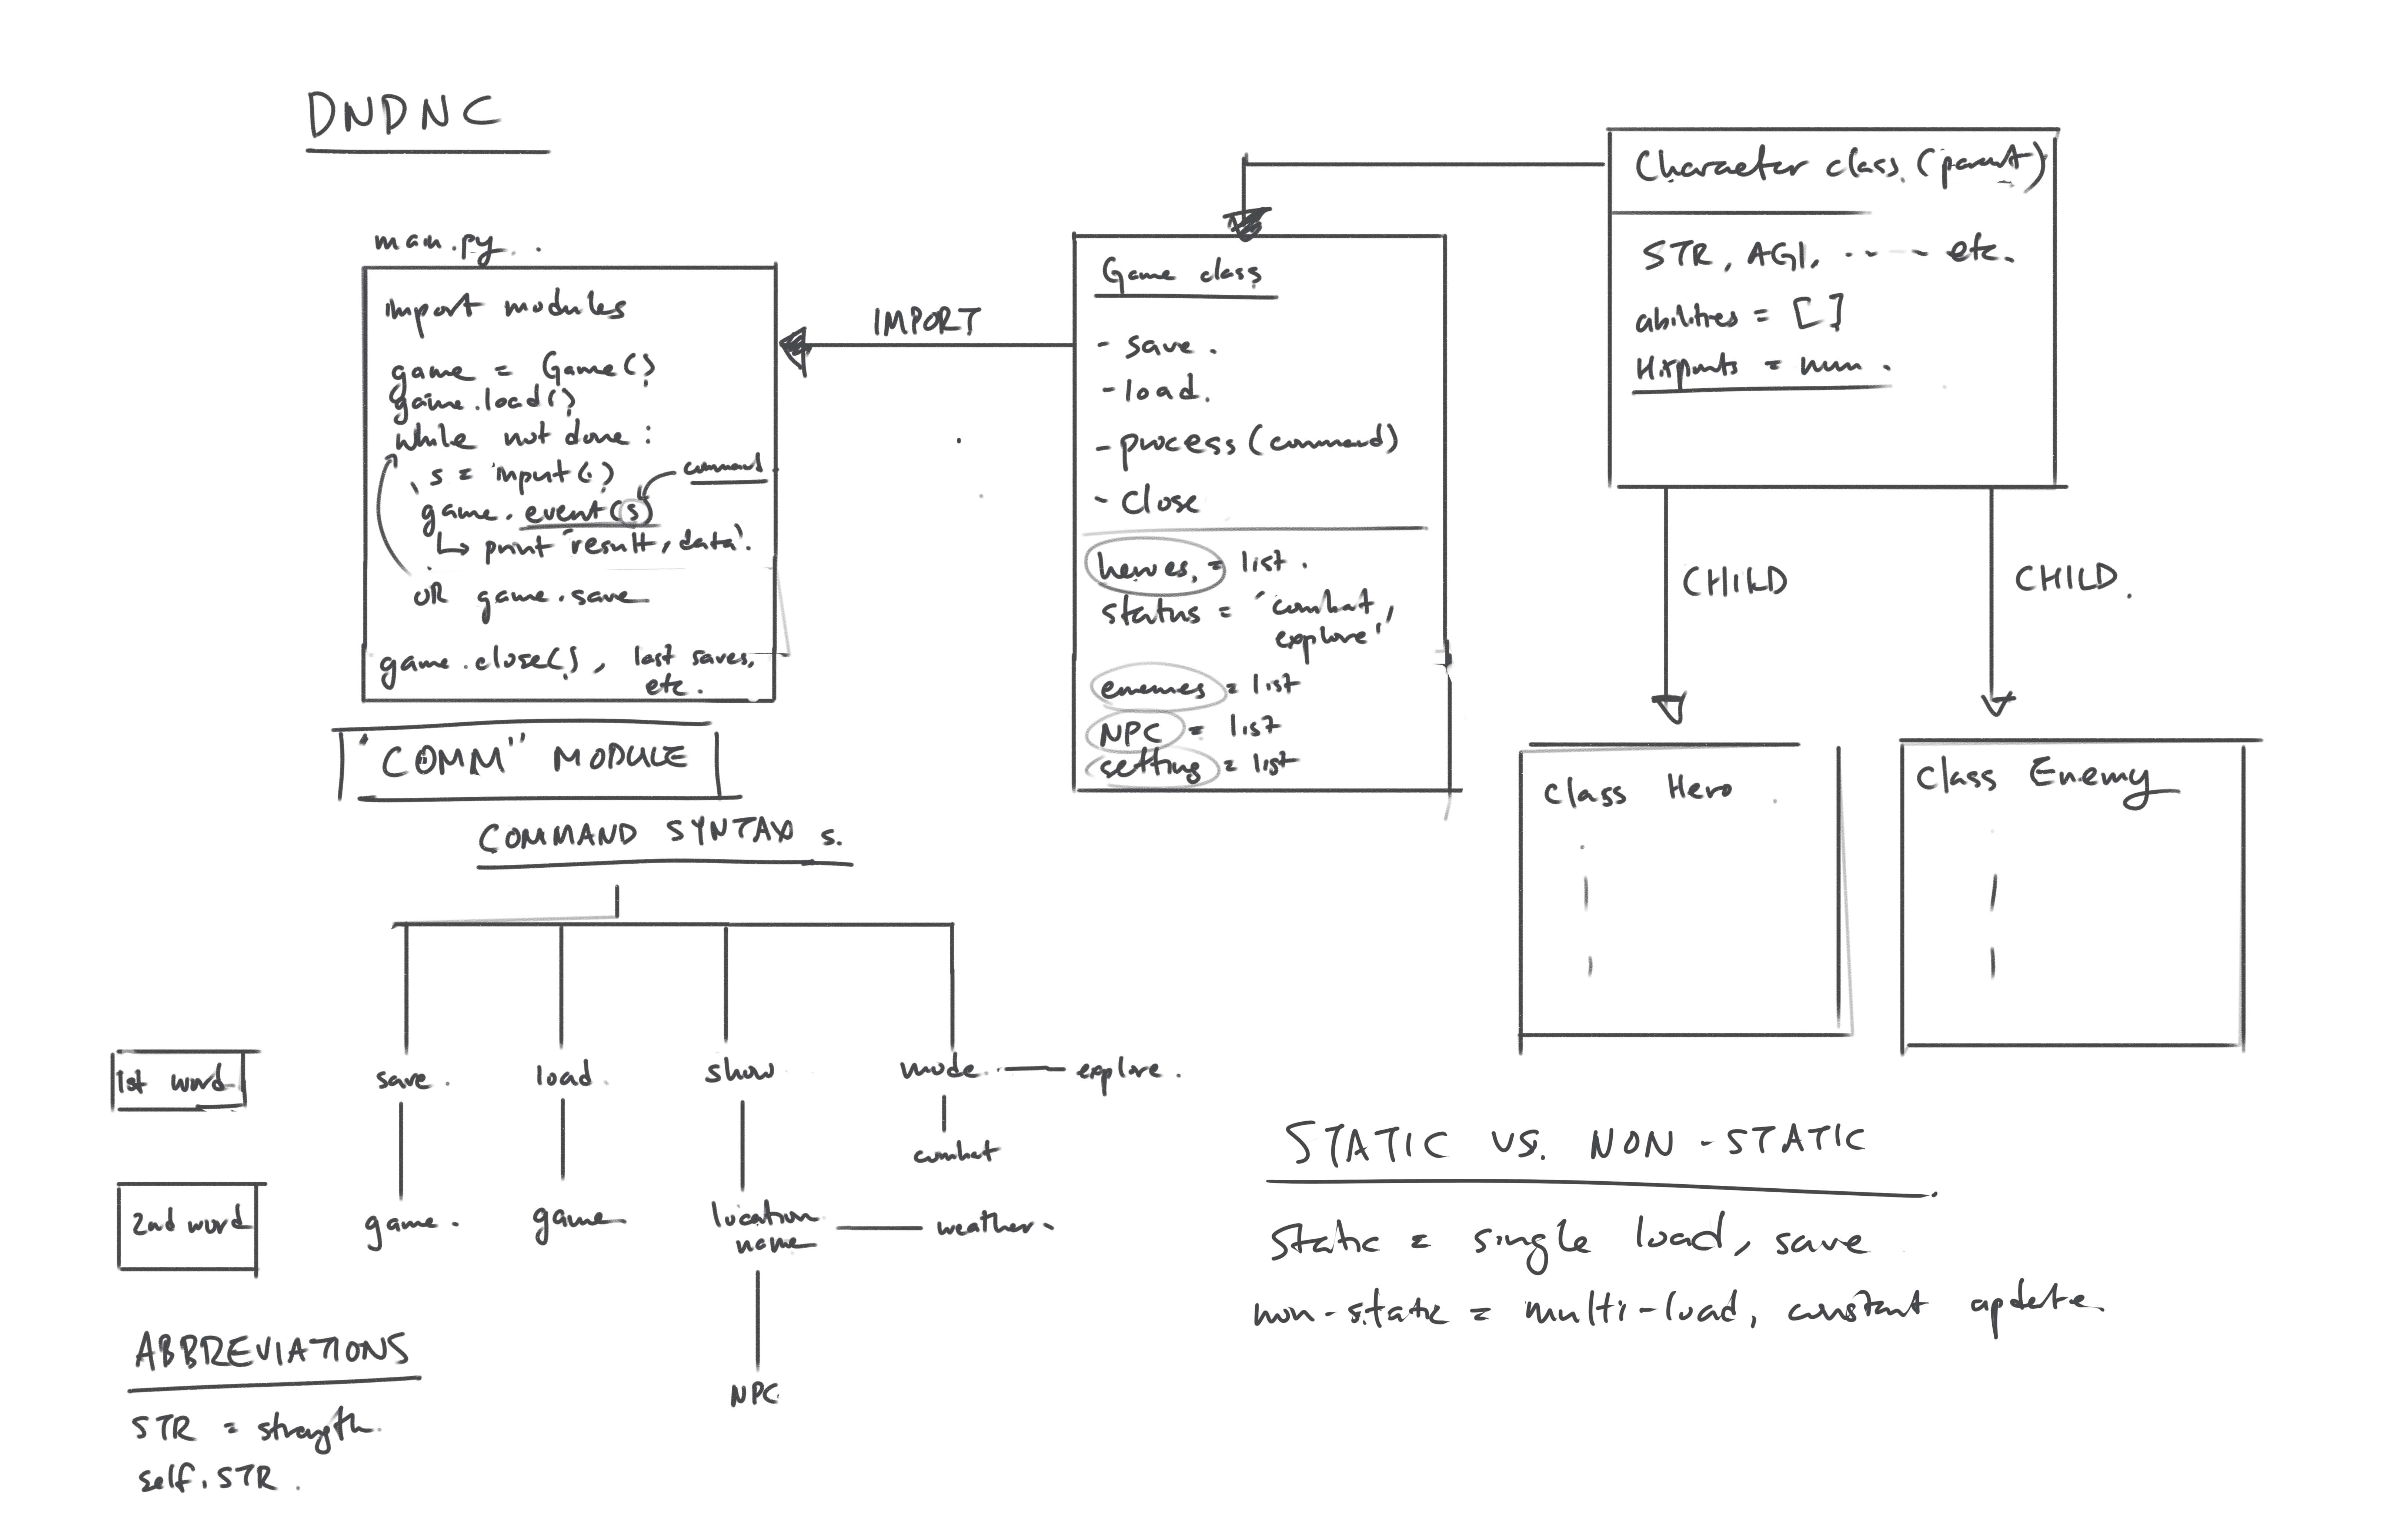 DNDNC
main.py.
import modules
game = Game()
game.load()
while not done:
s = input()
command
game.event(s)
↳ print 'result, data'.
OR game.save
game.close(), last saves,
etc.
IMPORT
Game class
- save.
- load.
- process (command)
- Close
heroes, = list.
status = 'combat,
explore'
enemies = list
NPC = list
setting = list
Character class (parent)
STR, AGI, ---- etc.
abilities = []
Hitpoints = num.
CHILD
CHILD.
Class Hero
Class Enemy
"COMM" MODULE
COMMAND SYNTAX s.
1st word
save.
load.
show
mode
explore.
combat
2nd word
game.
game
location
name
weather
NPC
ABBREVIATIONS
STR = strength
self.STR.
STATIC VS. NON-STATIC
Static = single load, save
non-static = multi-load, constant update